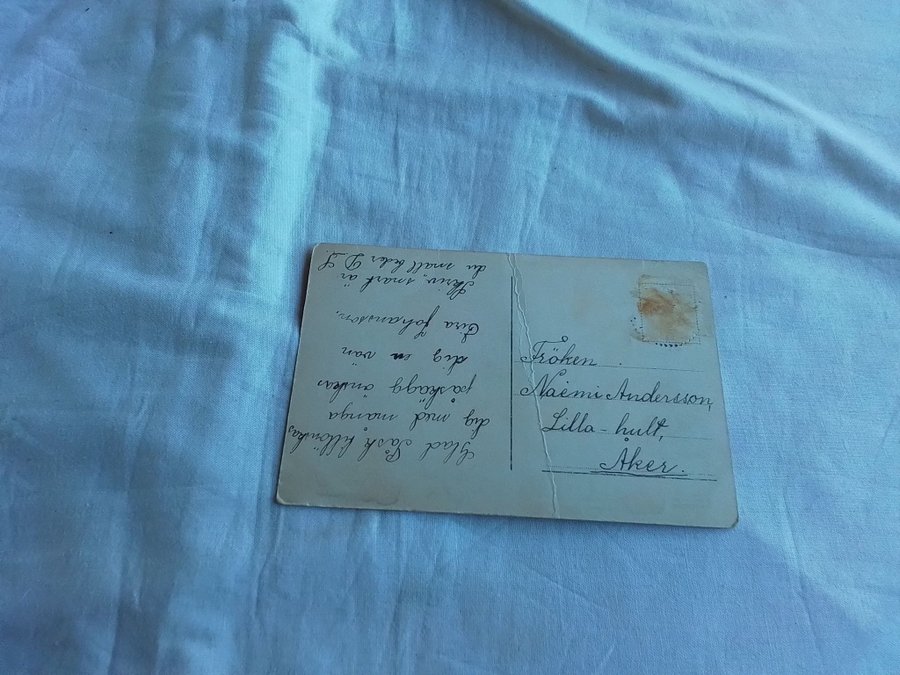 Glad Påsk tillönskas
dig med många
påskägg önskas
dig en vän
Eva Johansson.
Skriv, snart är
du snäll beder D. S
Fröken.
Naëmi Andersson,
Lilla-hult,
Åker.